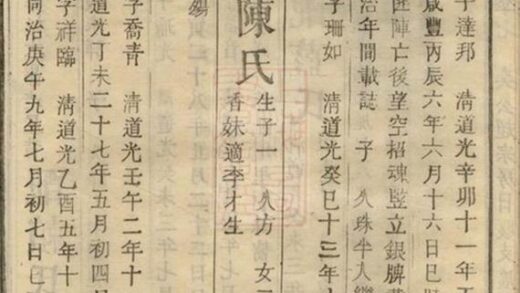 字達邦 清道光辛卯十一年
咸豐丙辰六年六月十六日巳時
匪陣亡後望空招魂豎立銀牌
治年間載誌 子 久珠半人繼
字珊如 清道光癸巳十三年
陳氏 生子一 久方 女
香妹適李才生
字喬青 清道光壬午二年十
道光丁未二十七年五月初四
字祥臨 清道光乙酉五年十
同治庚午九年七月初七日巳